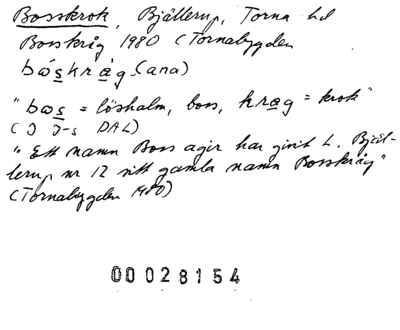 Bosskrok, Bjällerup, Torna hd
Bosskråg 1980 (Tornabygden
bóskràg (ana)
"bos = löshalm, boss, krag = krok"
(I J-s DAL)
"Ett namn Boss agir har givit L. Bjäl-
lerup nr 12 sitt gamla namn Bosskråg"
(Tornabygden 1980)
00028154